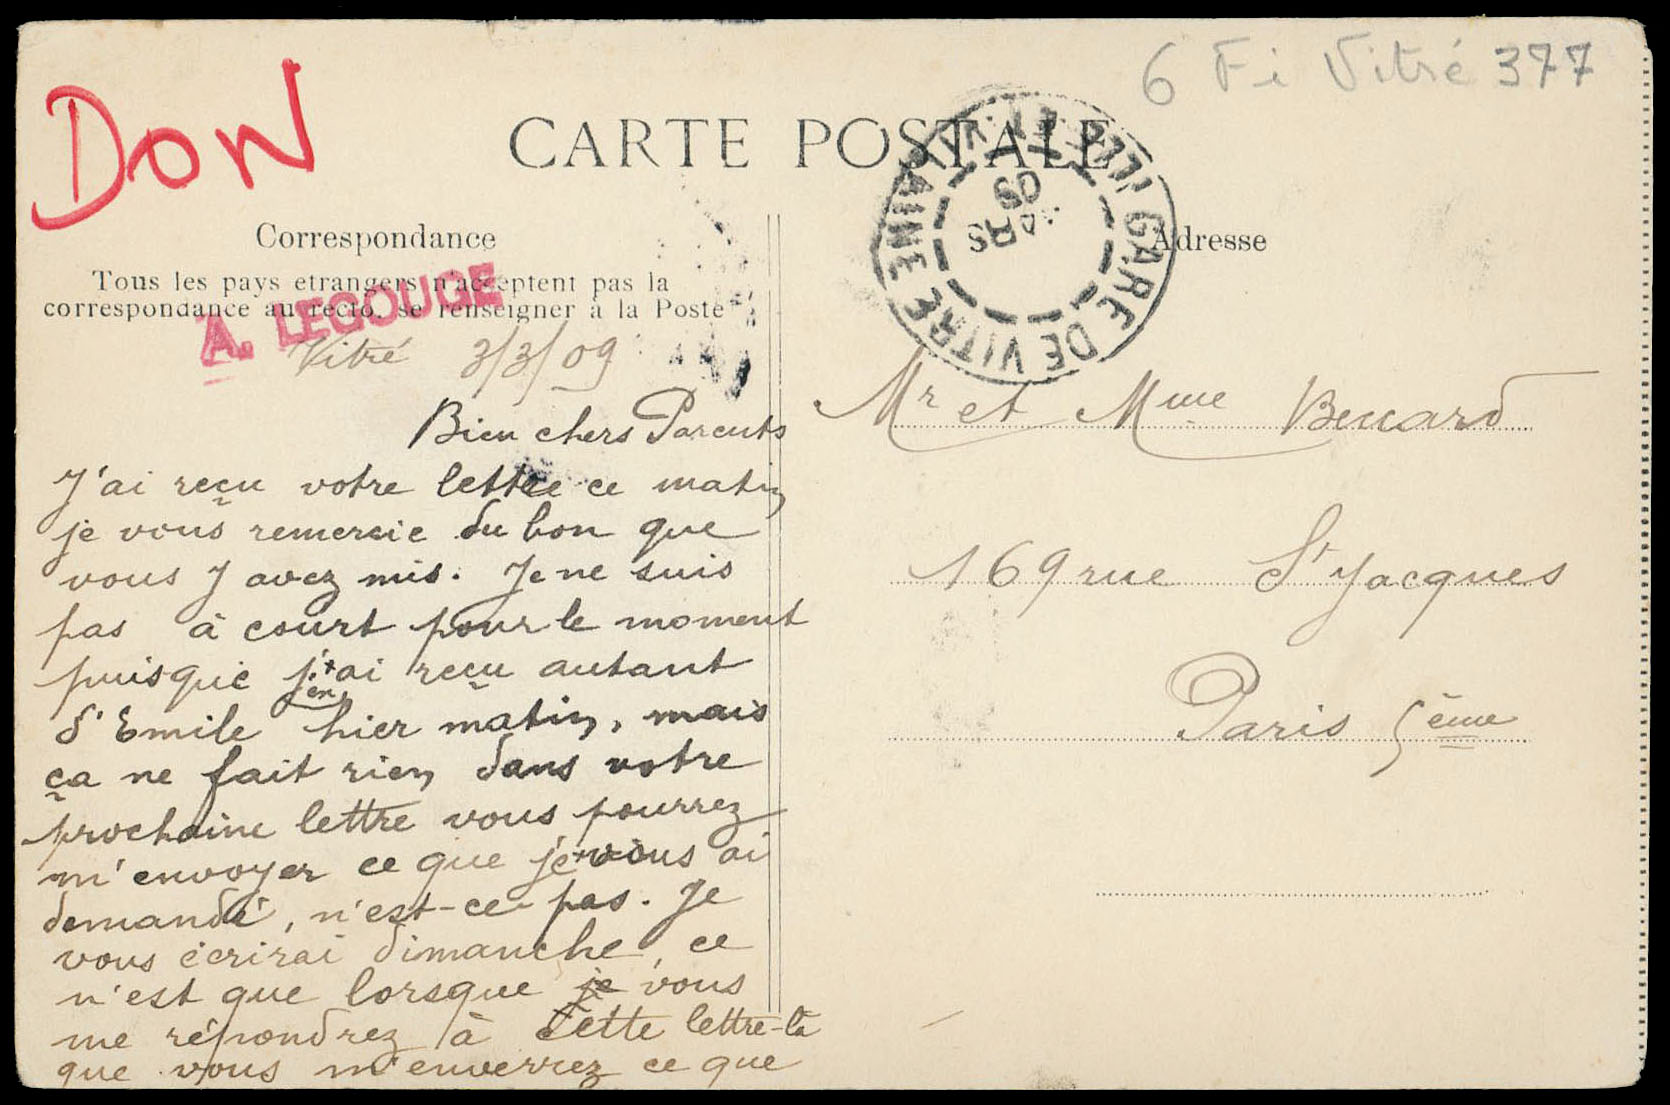 6 Fi Vitré 377
DON
CARTE POSTALE
Correspondance
Tous les pays etrangers n'acceptent pas la
correspondance au recto, se renseigner à la Poste
A. LEGOUGE
Vitré 3/3/09
Bien chers Parents
J'ai reçu votre lettre ce matin
je vous remercie du bon que
vous y avez mis. Je ne suis
pas à court pour le moment
puisque j'en ai reçu autant
d'Emile hier matin, mais
ça ne fait rien, dans votre
prochaine lettre vous pourrez
m'envoyer ce que je vous ai
demandé, n'est-ce pas. Je
vous écrirai dimanche, ce
n'est que lorsque je vous
me répondrez à cette lettre-là
que vous m'enverrez ce que
Adresse
GARE DE VITRE
09
Mr et Mme Benard
169 rue St Jacques
Paris 5ème